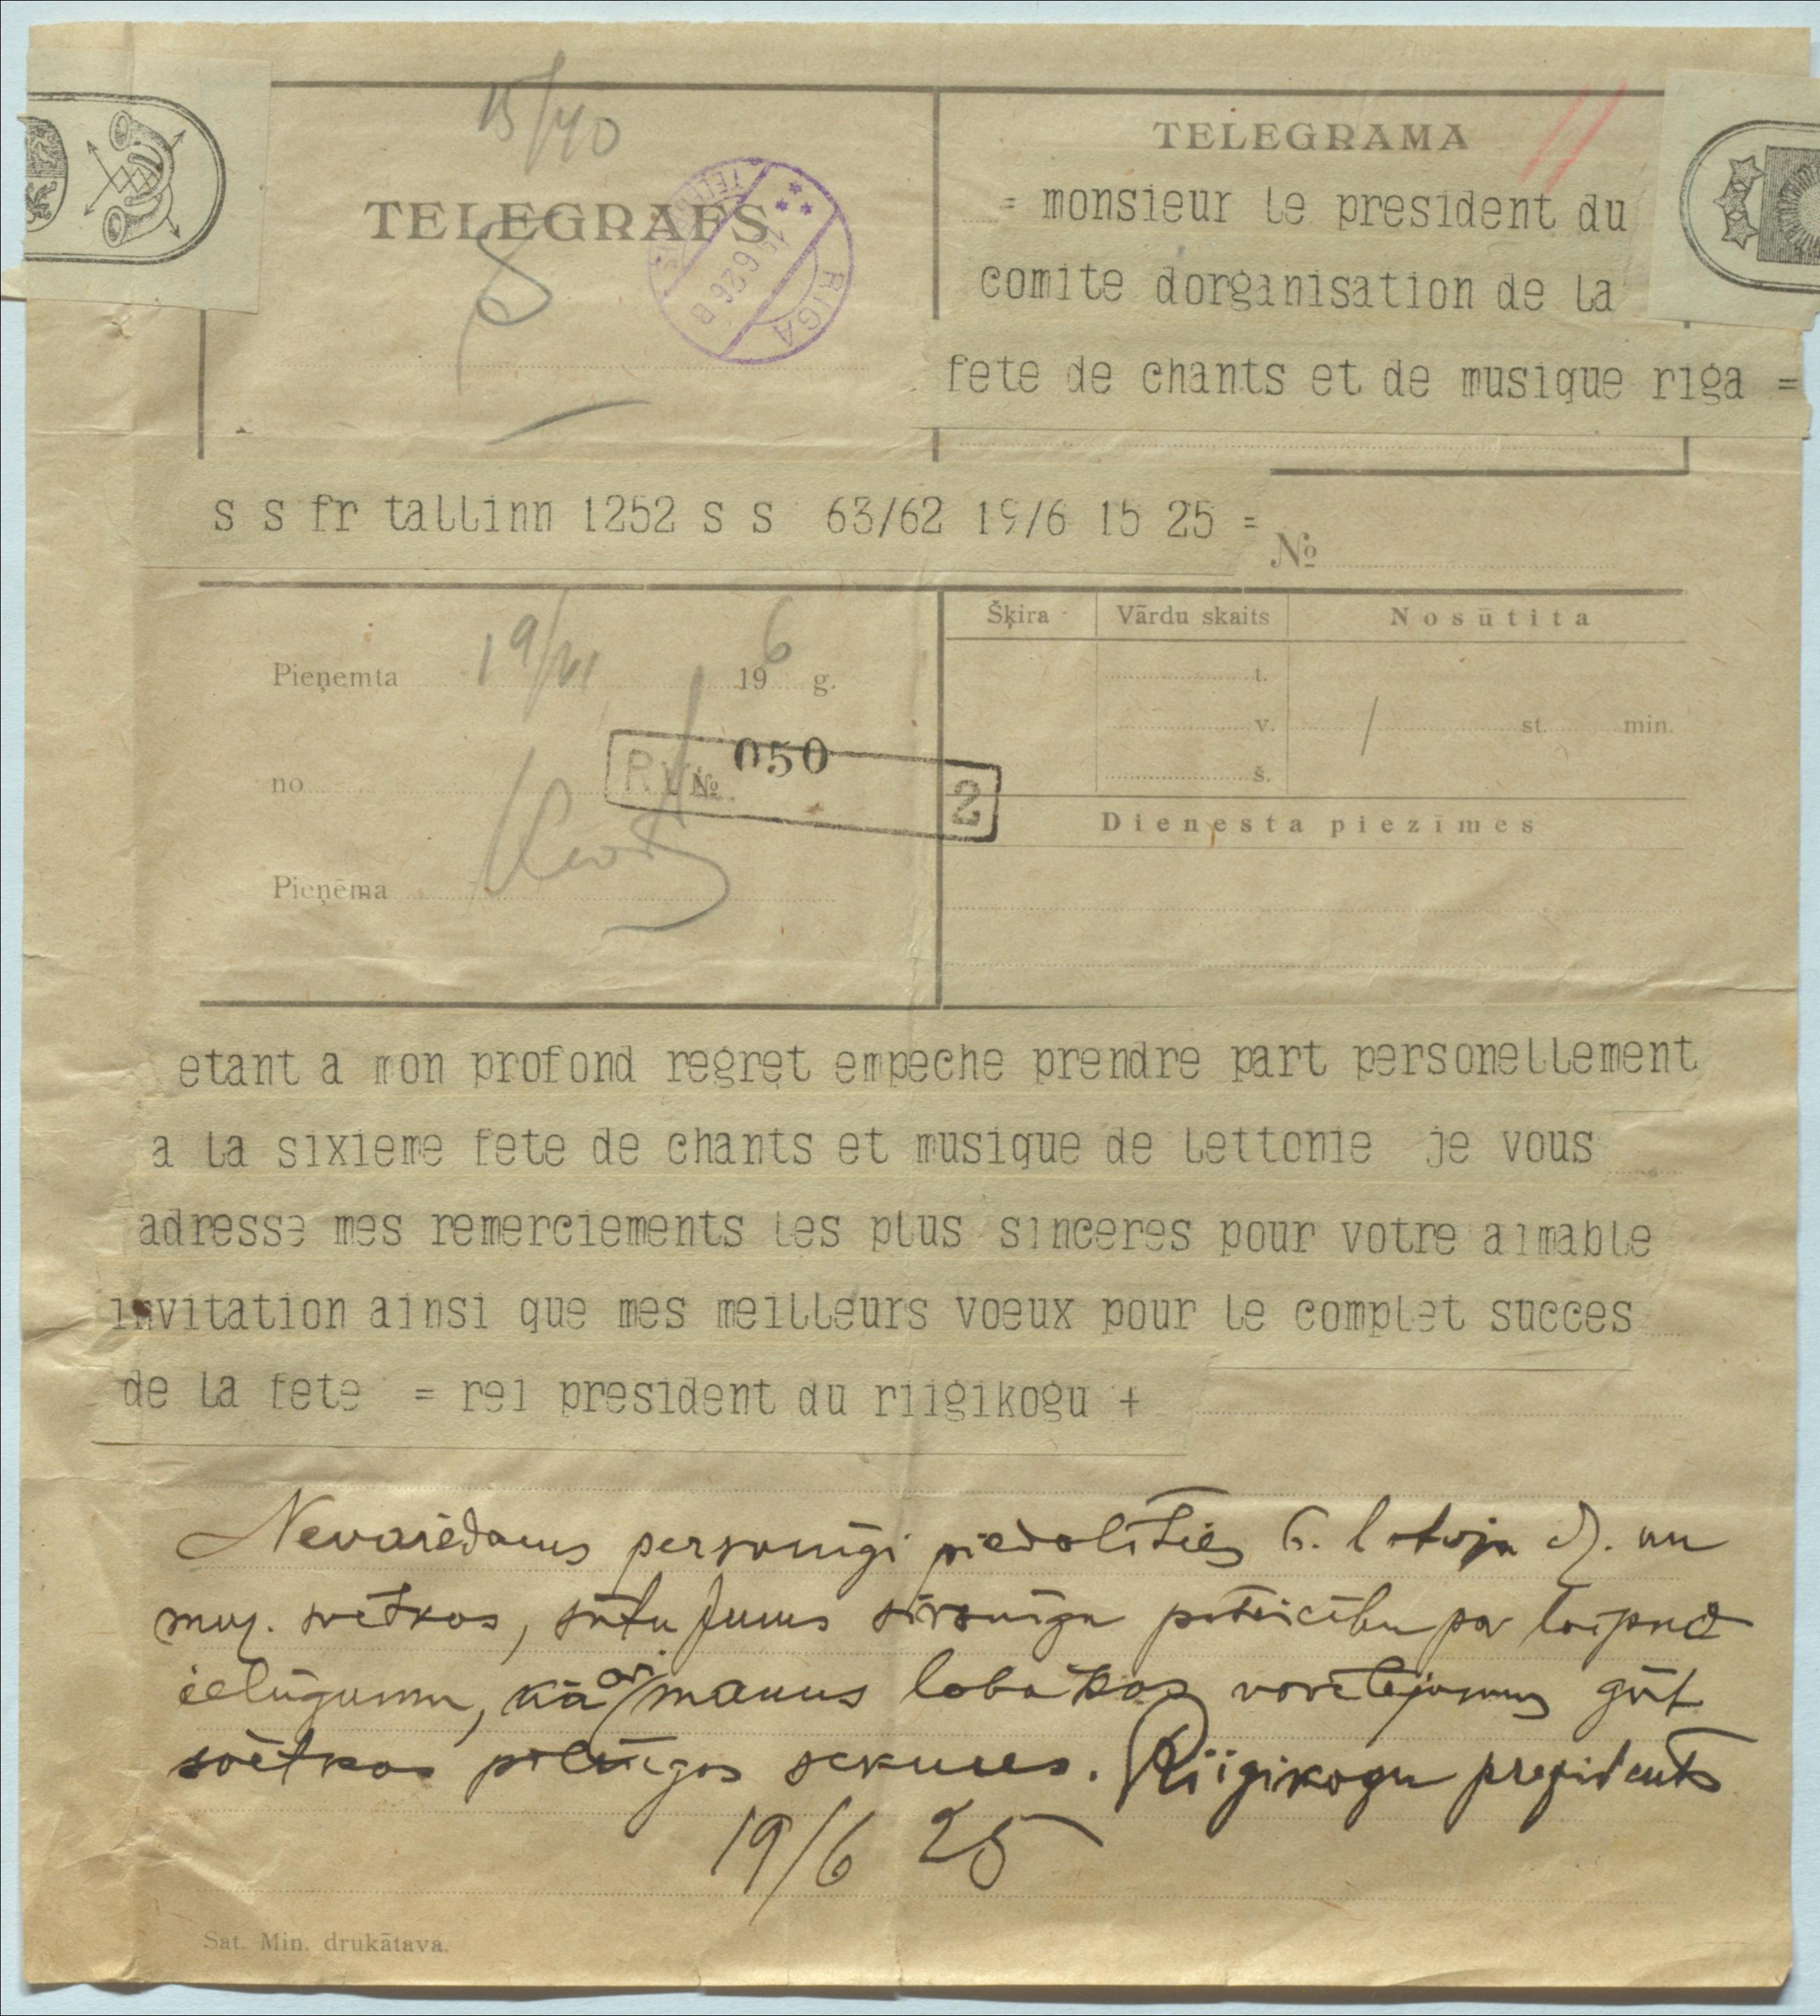 15/40
TELEGRAFS
RIGA
TELEGRAMA
= monsieur le president du
comite dorganisation de la
fete de chants et de musique riga =
s s fr tallinn 1252 s s 63/62 19/6 15 25 =
№
Pieņemta 19/VI 196 g.
no
Pieņēma
№ 050 2
Šķira Vārdu skaits Nosūtita
t.
v. / st. min.
š.
Dienesta piezīmes
etant a mon profond regret empeche prendre part personellement
a la sixieme fete de chants et musique de lettonie je vous
adresse mes remerciements les plus sinceres pour votre aimable
invitation ainsi que mes meilleurs voeux pour le complet succes
de la fete = rei president du riigikogu +
Nevarēdams personīgi piedalīties 6. latvju dz. un
muz. svētkos, sūtu Jums sirsnīgu pateicību par laipno
ielūgumu, kā arī manus labākos novēlējumus gūt
svētkos pilnīgas sekmes. Riigikogu prezidents
19/6 25
Sat. Min. drukātava.